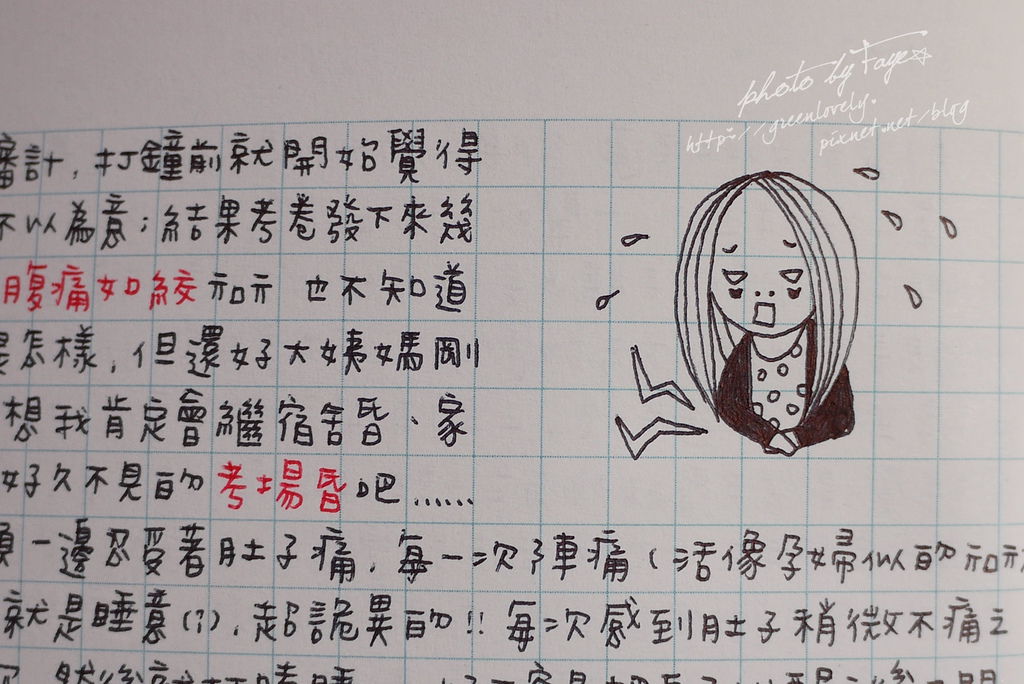 photo by Faye☆
http://greenlovely.
pixnet.net/blog
審計,打鐘前就開始覺得
不以為意;結果考卷發下來幾
腹痛如絞 ㄋㄟㄋㄟ 也不知道
是怎樣,但還好大姨媽剛
想我肯定會繼宿舍昏、家
好久不見的考場昏吧......
一邊忍受著肚子痛,每一次陣痛(活像孕婦似的
就是睡意(?),超詭異的!!每次感到肚子稍微不痛之